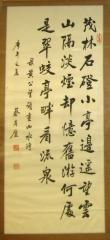 茂林石磴小亭邊遙望雲
山隔淡煙却憶舊游何處
是翠蛟亭畔看流泉